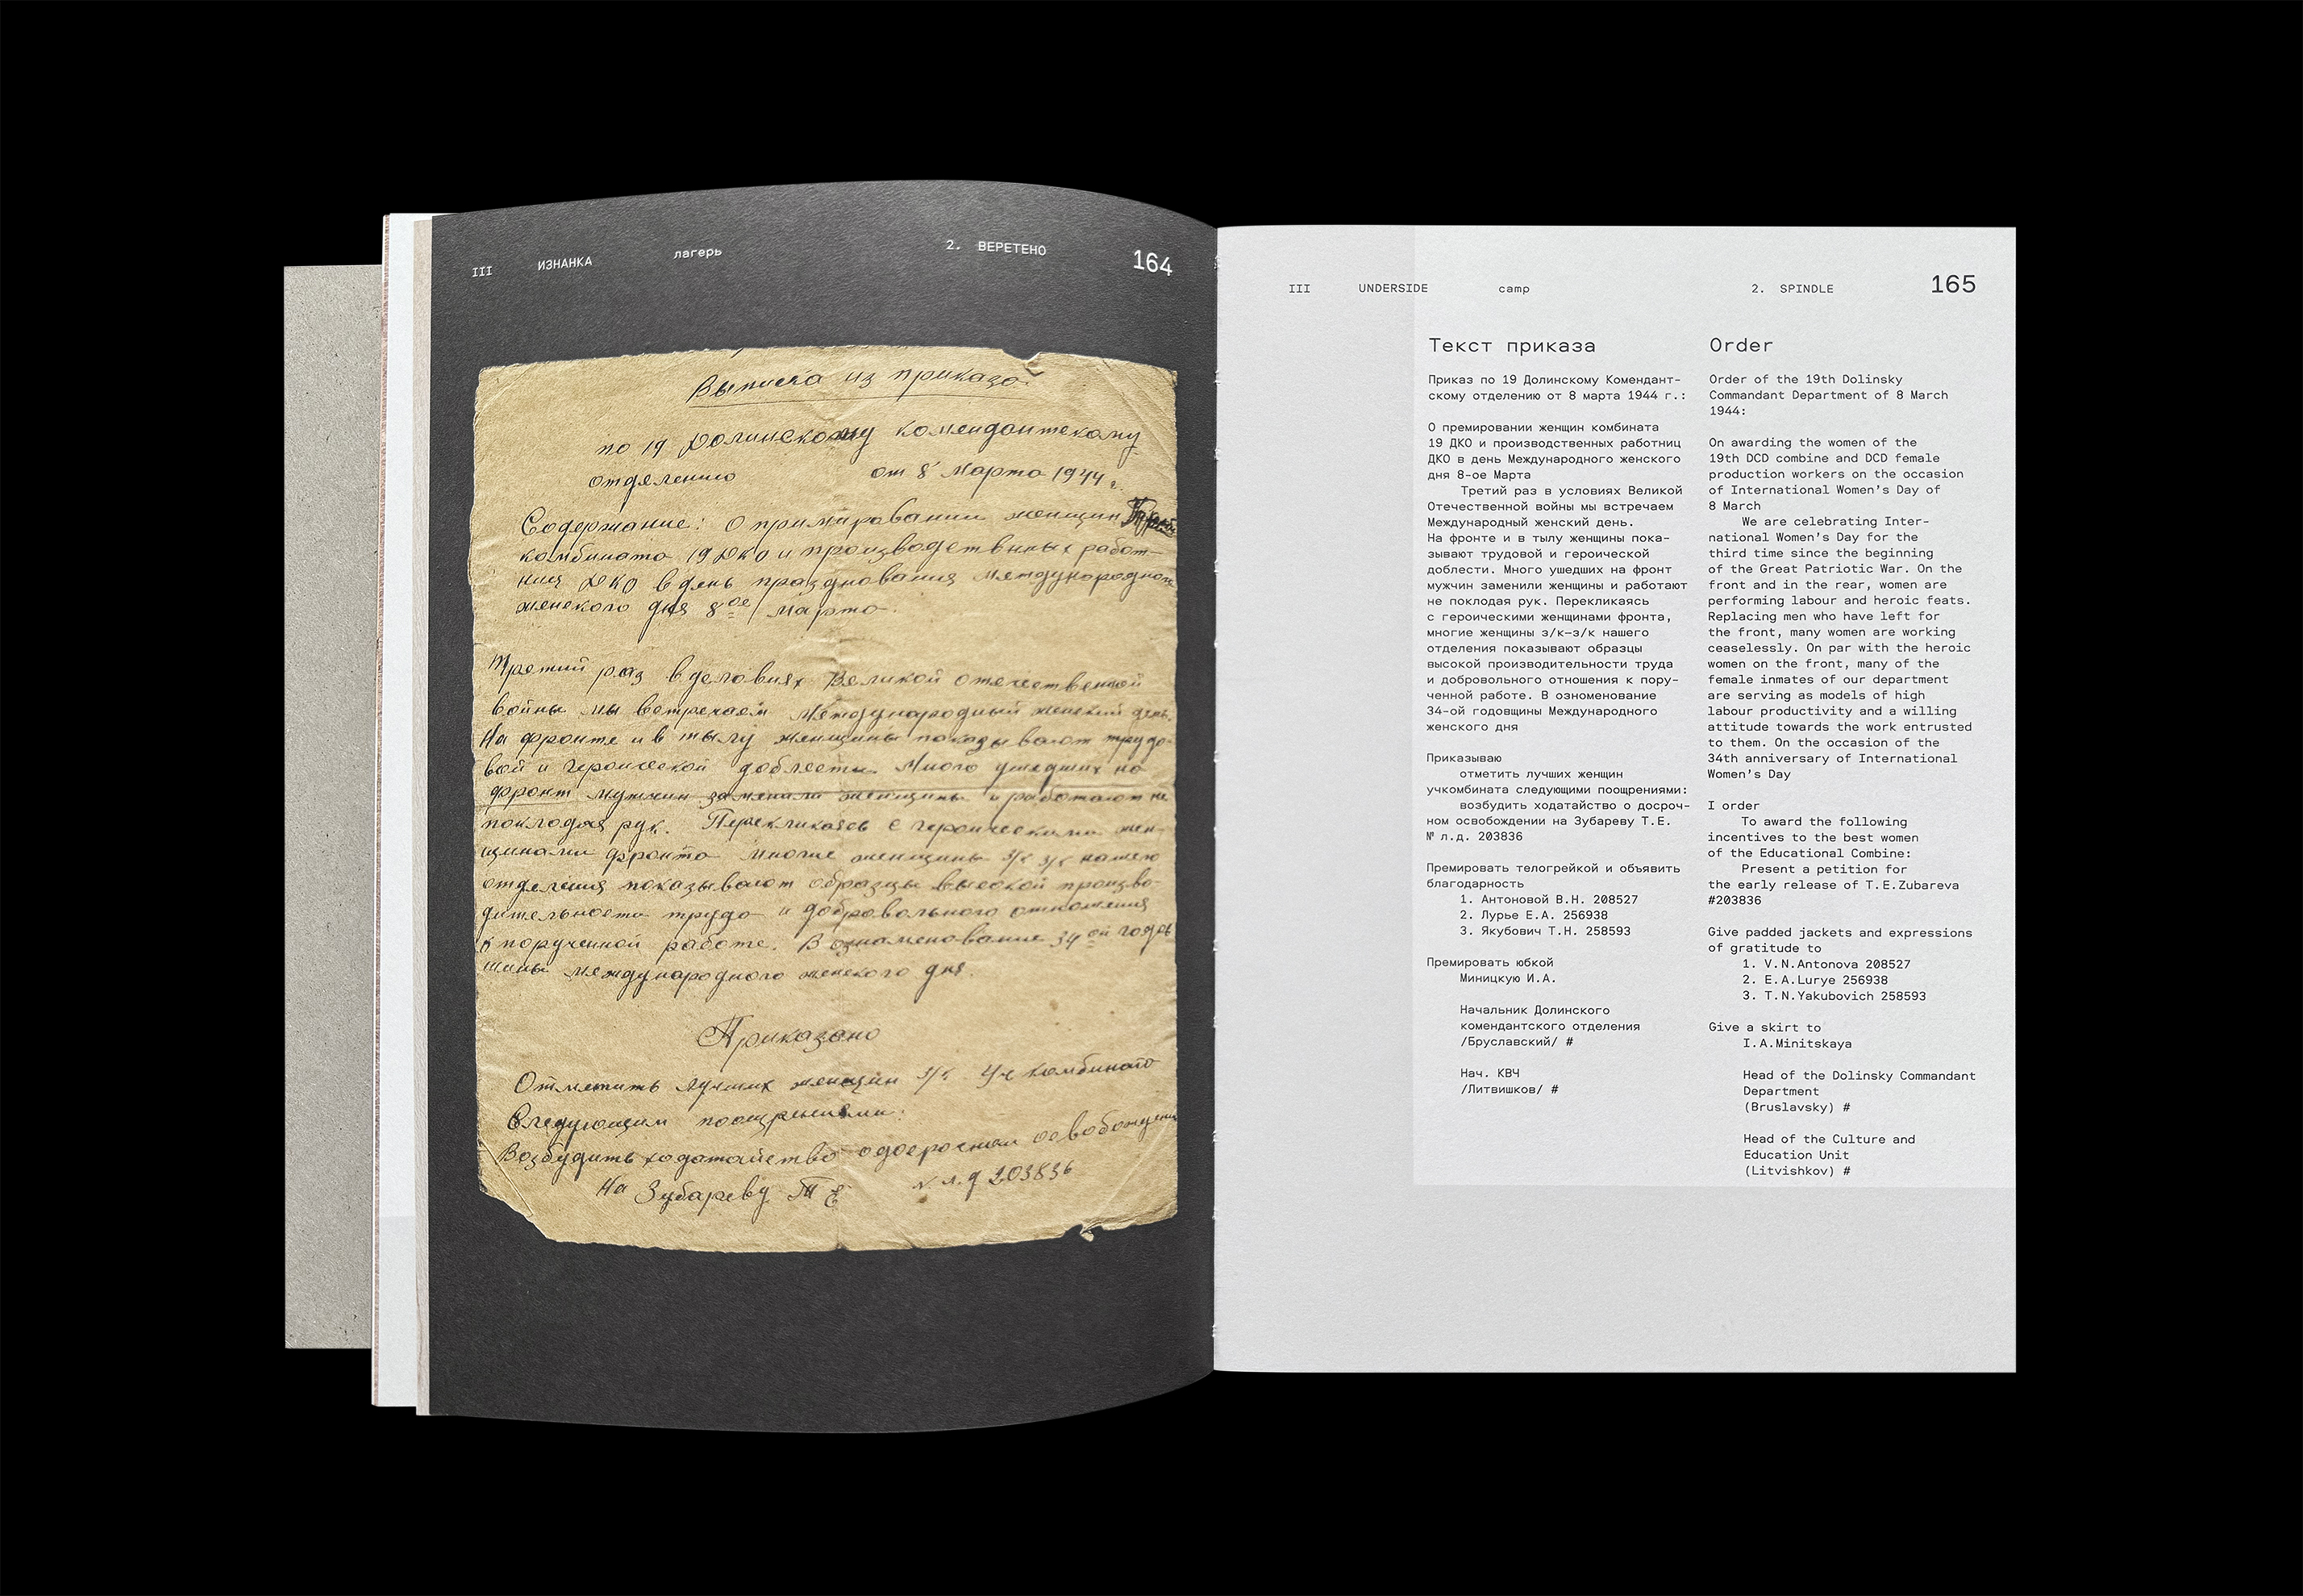 III ИЗНАНКА лагерь 2. ВЕРЕТЕНО 164
Выписка из приказа
по 19 Долинскому комендантскому
отделению от 8 Марта 1944 г.
Содержание: О примировании женщин
комбината 19 ДКО и производствнных работ-
ниц ДКО в день празднования международного
женского дня 8ое Марта.
Третий раз в условиях Великой отечественной
войны мы встречаем Международный женский день.
На фронте и в тылу женщины показывают трудо-
вой и героической доблести. Много ушедших на
фронт мужчин заменили женщины и работают не
покладая рук. Перекликаясь с героическими жен-
щинами фронта многие женщины з/к з/к нашего
отделения показывают образцы высокой произво-
дительности труда и добровольного отношения
к порученной работе. В ознаменование 34ой годов
щины международного женского дня.
Приказано
Отметить лучших женщин з/к Уч комбината
Следующим поощрениями:
Возбудить ходатайство одосрочном освобождении
На Зубареву Т Е N л.д 203836
III UNDERSIDE camp 2. SPINDLE 165
Текст приказа
Приказ по 19 Долинскому Комендант-
скому отделению от 8 марта 1944 г.:
О премировании женщин комбината
19 ДКО и производственных работниц
ДКО в день Международного женского
дня 8-ое Марта
Третий раз в условиях Великой
Отечественной войны мы встречаем
Международный женский день.
На фронте и в тылу женщины пока-
зывают трудовой и героической
доблести. Много ушедших на фронт
мужчин заменили женщины и работают
не поклодая рук. Перекликаясь
с героическими женщинами фронта,
многие женщины з/к–з/к нашего
отделения показывают образцы
высокой производительности труда
и добровольного отношения к пору-
ченной работе. В озноменование
34-ой годовщины Международного
женского дня
Приказываю
отметить лучших женщин
учкомбината следующими поощрениями:
возбудить ходатайство о досроч-
ном освобождении на Зубареву Т.Е.
№ л.д. 203836
Премировать телогрейкой и объявить
благодарность
1. Антоновой В.Н. 208527
2. Лурье Е.А. 256938
3. Якубович Т.Н. 258593
Премировать юбкой
Миницкую И.А.
Начальник Долинского
комендантского отделения
/Бруславский/ #
Нач. КВЧ
/Литвишков/ #
Order
Order of the 19th Dolinsky
Commandant Department of 8 March
1944:
On awarding the women of the
19th DCD combine and DCD female
production workers on the occasion
of International Women’s Day of
8 March
We are celebrating Inter-
national Women’s Day for the
third time since the beginning
of the Great Patriotic War. On the
front and in the rear, women are
performing labour and heroic feats.
Replacing men who have left for
the front, many women are working
ceaselessly. On par with the heroic
women on the front, many of the
female inmates of our department
are serving as models of high
labour productivity and a willing
attitude towards the work entrusted
to them. On the occasion of the
34th anniversary of International
Women’s Day
I order
To award the following
incentives to the best women
of the Educational Combine:
Present a petition for
the early release of T.E.Zubareva
#203836
Give padded jackets and expressions
of gratitude to
1. V.N.Antonova 208527
2. E.A.Lurye 256938
3. T.N.Yakubovich 258593
Give a skirt to
I.A.Minitskaya
Head of the Dolinsky Commandant
Department
(Bruslavsky) #
Head of the Culture and
Education Unit
(Litvishkov) #